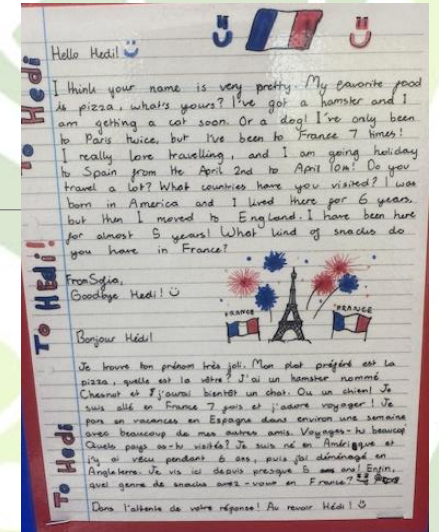 Hello Hedi!
I think your name is very pretty. My favorite food
is pizza, what's yours? I've got a hamster and I
am getting a cat soon. Or a dog! I've only been
to Paris twice, but I've been to France 7 times!
I really love travelling, and I am going holiday
to Spain from the April 2nd to April 10th! Do you
travel a lot? What countries have you visited? I was
born in America and I lived there for 6 years,
but then I moved to England. I have been here
for almost 5 years! What kind of snacks do
you have in France?
From Sofia,
Goodbye Hedi!
FRANCE
FRANCE
Bonjour Hédi!
Je trouve ton prénom très joli. Mon plat préféré est la
pizza, quelle est la vôtre? J'ai un hamster nommé
Chesnot et j'aurai bientôt un chat. Ou un chien! Je
suis allé en France 7 fois et j'adore voyager! Je
pars en vacances en Espagne dans environ une semaine
avec beaucoup de mes autres amis. Voyages-tu beaucoup
Quels pays as-tu visités? Je suis né en Amérique et
j'y ai vécu pendant 6 ans, puis j'ai déménagé en
Angleterre. Je vis ici depuis presque 5 ans! Enfin,
quel genre de snacks avez-vous en France?
Dans l'attente de votre réponse! Au revoir Hédi!
To Hedi
To Hedi!!
To Hedi